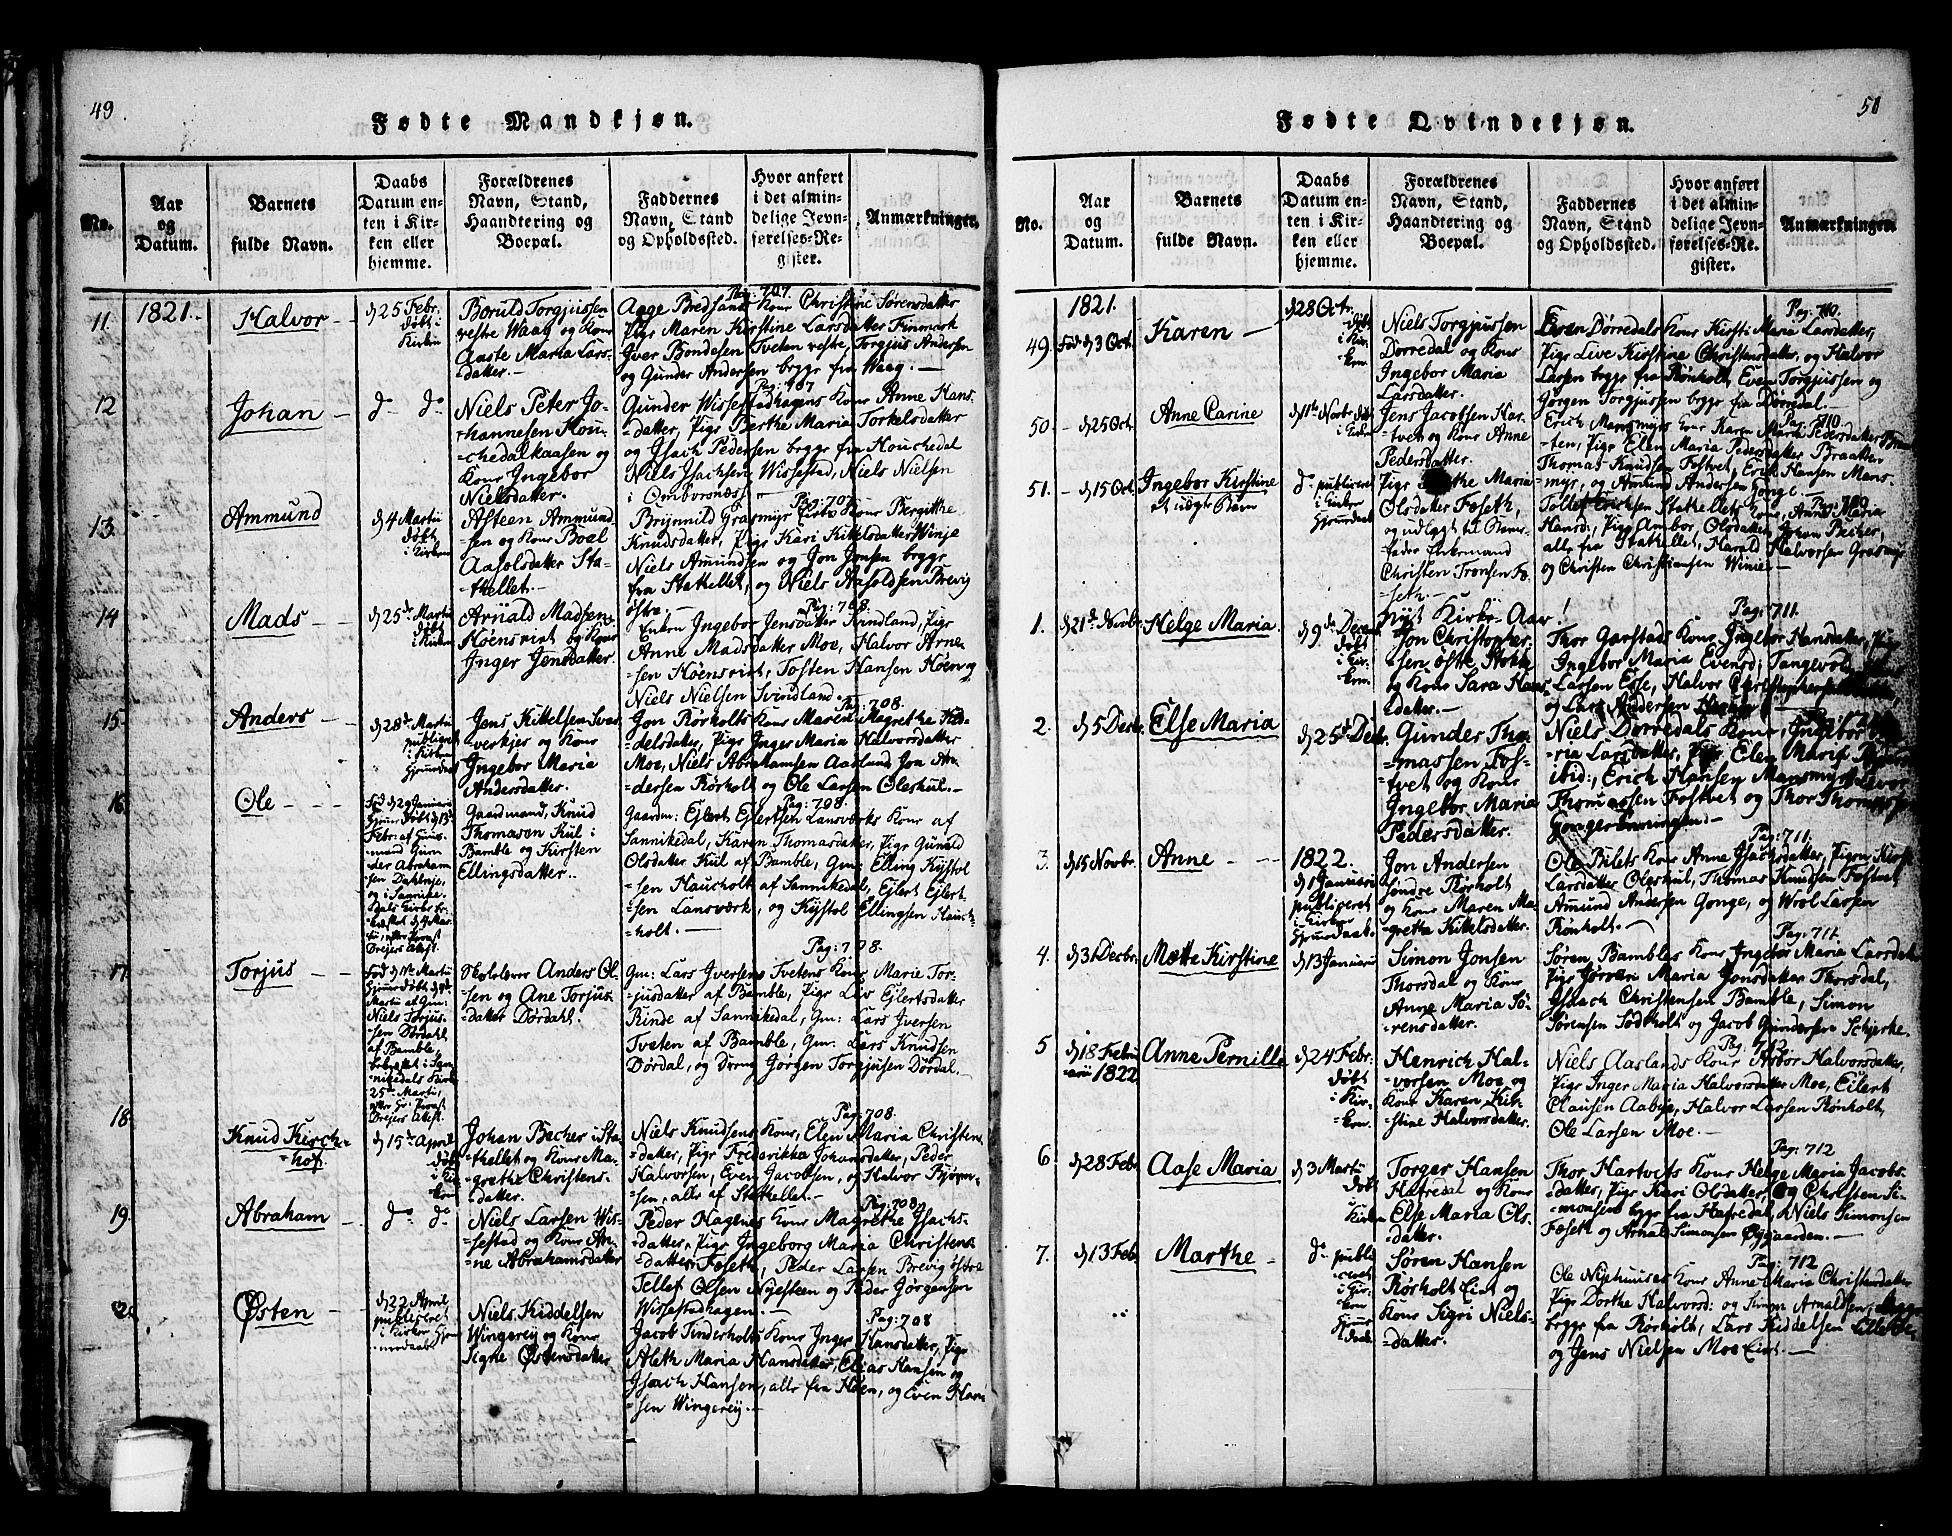 49.
Fødte Mandkjøn.
No.
Aar
og
Datum.
Barnets
fulde Navn.
Daabs
Datum en-
ten i Kir-
ken eller
hjemme.
Forældrenes
Navn, Stand,
Haandtering og
Boepæl.
Faddernes
Navn, Stand
og Opholdssted.
Hvor anført
i det almin-
delige Jevn-
førelses-Re-
gister.
Anmærkninger.
11.
1821.
Halvor
d 25 Febr.
døbt i
Kirken
Boruld Torgjussen
vestre Waag og Kone
Aaste Maria Lars-
datter.
Pag: 707.
Aage Bredsand Kone Christine Sørensdatter
Pige Maren Kirstine Larsdatter Finmark
Iver Bondesen Tveten vestre, Torgjus Andersen
og Gunder Andersen bægge fra Waag.
12
Johan
do do
Niels Peter Jo-
hannesen Hou-
chedalkaasen og
Kone Ingebor
Nielsdatter.
Pag: 707
Gunder Wissestadhagens Kone Anne Hans-
datter, Pige Berthe Maria Torkelsdatter
og Isach Pedersen bægge fra Houchedal
Niels Isachsen Wissestad, Niels Nielsen
i Omborsnæss
13.
Ammund
d 4 Martii
døbt
i Kirken
Asteen Ammund-
sen og Kone Boel
Aasolsdatter Sta-
thellet.
Pag: 707
Brynnild Grasmyr Kone Bergithe
Knudsdatter, Pige Kari Kittelsdatter Winje
Niels Amundsen og Jon Jonsen bægge
fra Stathellet, og Niels Aasoldsen Brevig
østre.
14
Mads
d 25de Martii
døbt
i Kirken
Arnald Madsen
Høensvint og Kone
Inger Jensdatter
Pag: 708.
Enken Ingebor Jensdatter Svindland, Pige
Anne Madsdatter Moe, Halvor Arne-
sen Høensvint, Tosten Hansen Høen og
Niels Nielsen Svindland.
15.
Anders
d 28de Martii
publiceret
i Kirken
hjemdøbt
Jens Kittelsen Svar-
verkjer og Kone
Ingebor Maria
Andersdatter.
Pag: 708.
Jon Rørholts Kone Maren Magrethe Kid-
delsdatter, Pige Inger Maria Halvorsdatter
Moe, Niels Abrahamsen Aasland Jon An-
dersen Rørholt og Ole Larsen Oleskul.
16.
Ole
Fød d 29 Januarii
hjemdøbt d 13de
Febr: af Guus-
mand Gun-
der Abraham-
sen Dahlenje,
og i Sannike-
dals Kirke be-
Gaardmand, Knud
Thomasen Kiil i
Bamble og Kirsten
Ellingsdatter.
Pag: 708.
Gaardm: Ejlert Ejlertsen Lansværks Kone af
Sannikedal, Karen Thomasdatter, Pige Gunild
Olsdatter Kiil af Bamble, Gm: Elling Kjistol
sen Haucholt af Sannikedal, Ejlert Ejlert-
sen Lansværk, og Kjistol Ellingsen Hauc-
holt.
17
Torjus
Fød d 11te Martii
hjemdøbt
Martii af Gm:
Niels Torjus-
sen Dørdahl
af Bamble,
Skolelærer Anders Ol-
sen og Ane Torjus-
datter Dørdahl.
Pag: 708.
Gm: Lars Iversens Tvetens Kone Marie Tor-
jusdatter af Bamble, Pige Liv Ejlertsdatter
Rinde af Sannikedal, Gm: Lars Iversen
Tveten af Bamble, Gm: Lars Knudsen
Dørdal, og Dreng Jørgen Torgjusen Dørdal.
18.
Knud Kirch-
hof.
d 15de April
døbt
i Kir-
ken
Johan Becher i Sta-
thellet og Kone Ma-
grethe Christens-
datter.
Pag: 708.
Niels Knudsens Kone, Elen Maria Christens-
datter, Pige Frederikka Johansdatter, Peder
Halvorsen, Even Jacobsen, og Halvor Bjørn-
sen, alle af Stathellet.
19.
Abraham
do do
Niels Larsen Wis-
sestad og Kone An-
ne Abrahamsdatter
Pag: 708.
Peder Hagenes Kone Magrethe Isachs-
datter, Pige Ingeborg Maria Christens-
datter Foseth, Peder Larsen Brevig østre
Tellef Olsen Nyesteen og Peder Jørgensen
Wissestadhagen.
20
Østen
d 22 April
publiceret
i Kirken hjem-
medaabt
Niels Kiddelsen
Wingereij og Kone
Signe Østensdatter
Pag: 708
Jacob Tinderholts Kone Inger Hansdatter, Pige
Aleth Maria Hansdatter, Elias Hansen og
Isach Hansen, alle fra Høen, og Even Han-
sen Wingereij.
50
Fødte Qvindekjøn.
No.
Aar
og
Datum.
Barnets
fulde Navn.
Daabs
Datum en-
ten i Kir-
ken eller
hjemme.
Forældrenes
Navn, Stand,
Haandtering og
Boepæl.
Faddernes
Navn, Stand
og Opholdssted.
Hvor anført
i det almin-
delige Jevn-
førelses-Re-
gister.
Anmærkninger.
1821.
49.
Fød d 3 Oct.
Karen
d 28 Oct.
døbt
i Kir-
ken
Niels Torgjussen
Dørredal og Kone
Ingebor Maria
Larsdatter.
Pag: 710.
Even Dørredals Kone Kirsti Maria Larsdatter,
Pige Live Kirstine Christensdatter, og Halvor
Larsen bægge fra Rønholt, Even Torgjussen og
Jørgen Torgjussen bægge fra Dørredal.
50
d 25 Oct.
Anne Carine
d 11te Novbr døbt
i Kirken
Jens Jacobsen Har-
tven og Kone Anne
Pedersdatter.
Pag: 710
Erich Mansmyrs Kone Karen Maria Pedersdatter
Pige Elen Maria Pedersdatter Braatten
Thomas Knudsen Fostvet, Erich Hansen Mans-
myr, og Amund Andersen Gonge
51.
d 15 Oct.
Ingebor Kirstine
et uægte Barn
do publiceret
i Kirken
hjemdaabt
Pige Marthe Maria
Olsdatter Foseth,
og udlagt til Barne-
fader Enkemand
Christen Tronsen Fo-
seth.
Pag: 710
Tollef Erichsen Stathellets Kone, Anne Maria
Hansd: Pige Ambor Olsdatter, Johan Becher,
alle fra Stathellet, Harald Halvorsen Grasmyr
og Christen Christiansen Winie.
Nyt Kirke-Aar!
1.
d 21de Novbr
Helge Maria
d 9de Decem
døbt
i Kir-
ken.
Jon Christopher-
sen østre Stokke
og Kone Sara Hans-
datter.
Pag: 711.
Thor Garstads Kone Ingebor Hansdatter, Pige
Ingebor Maria Evensd: Tangevold,
Larsen Esse, Halvor Christophersen
og Lars Andersen
2.
d 5 Decbr.
Else Maria
d 25de Decbr.
Gunder Tho-
massen Fos-
tvet og Kone
Ingebor Maria
Pedersdatter.
Niels Dørredals Kone, Ingebor Ma-
ria Larsdatter, Pige Elen Maria
ibid:, Erich Hansen Mansmyr, Halvor
Thomassen Fostvet og Thor Thomassen
3.
d 15 Novbr.
Anne
1822.
d 1 Januarii
publiceret
i Kirken
hjemdaabt
Jon Andersen
søndre Rørholt
og Kone Maren Ma-
grethe Kittelsdatter.
Pag: 711.
Ole Bilets Kone Anne Isachsdatter, Pigen Kirsti
Larsdatter Oleskul, Thomas Knudsen Fostvet
Amund Andersen Gonge, og Wrol Larsen
Rønholt.
4.
d 3 Decbr.
Mette Kirstine
d 13 Januarii
Simon Jonsen
Thorsdal og Kone
Anne Maria Sø-
rensdatter.
Pag: 711.
Søren Bambles Kone Ingebor Maria Larsdatter
Pige Jørran Maria Jonsdatter Thorsdal,
Isach Christensen Bamble, Simon
Sørensen Sødtholt og Jacob Gundersen Schjerke.
5
d 18 Febru-
arii 1822
Anne Pernille
d 24 Febr.
døbt
i Kir-
ken.
Henrich Hal-
vorsen Moe og
Kone Karen Kir-
stine Halvorsdatter.
Pag: 712
Niels Aaslands Kone Asbor Halvorsdatter,
Pige Inger Maria Halvorsdatter Moe, Eilert
Clausen Aabye, Halvor Larsen Rønholt,
Ole Larsen Moe.
6
d 28 Febr.
Aase Maria
d 3 Martii
døbt
i
Kirken
Torger Hansen
Hafredal og Kone
Else Maria Ols-
datter.
Pag: 712
Thor Hartvets Kone Helge Maria Jacobs-
datter, Pige Kari Olsdatter, og Christen Si-
monsen bægge fra Hafredal, Niels Simonsen
Foseth og Arnald Simonsen Øygaarden.
7.
d 13 Febr.
Marthe
do publi-
ceret
i Kir-
ken
hjemme-
døbt
Søren Hansen
Rørholt Eiet og
Kone Sigri Niels-
datter.
Pag: 712
Ole Nyehuuses Kone Anne Maria Christensdatter
Pige Dorthe Halvorsd: og Simon Arnaldsen,
bægge fra Rørholt, Lars Kiddelsen
og Jens Nielsen Moe Eiet.